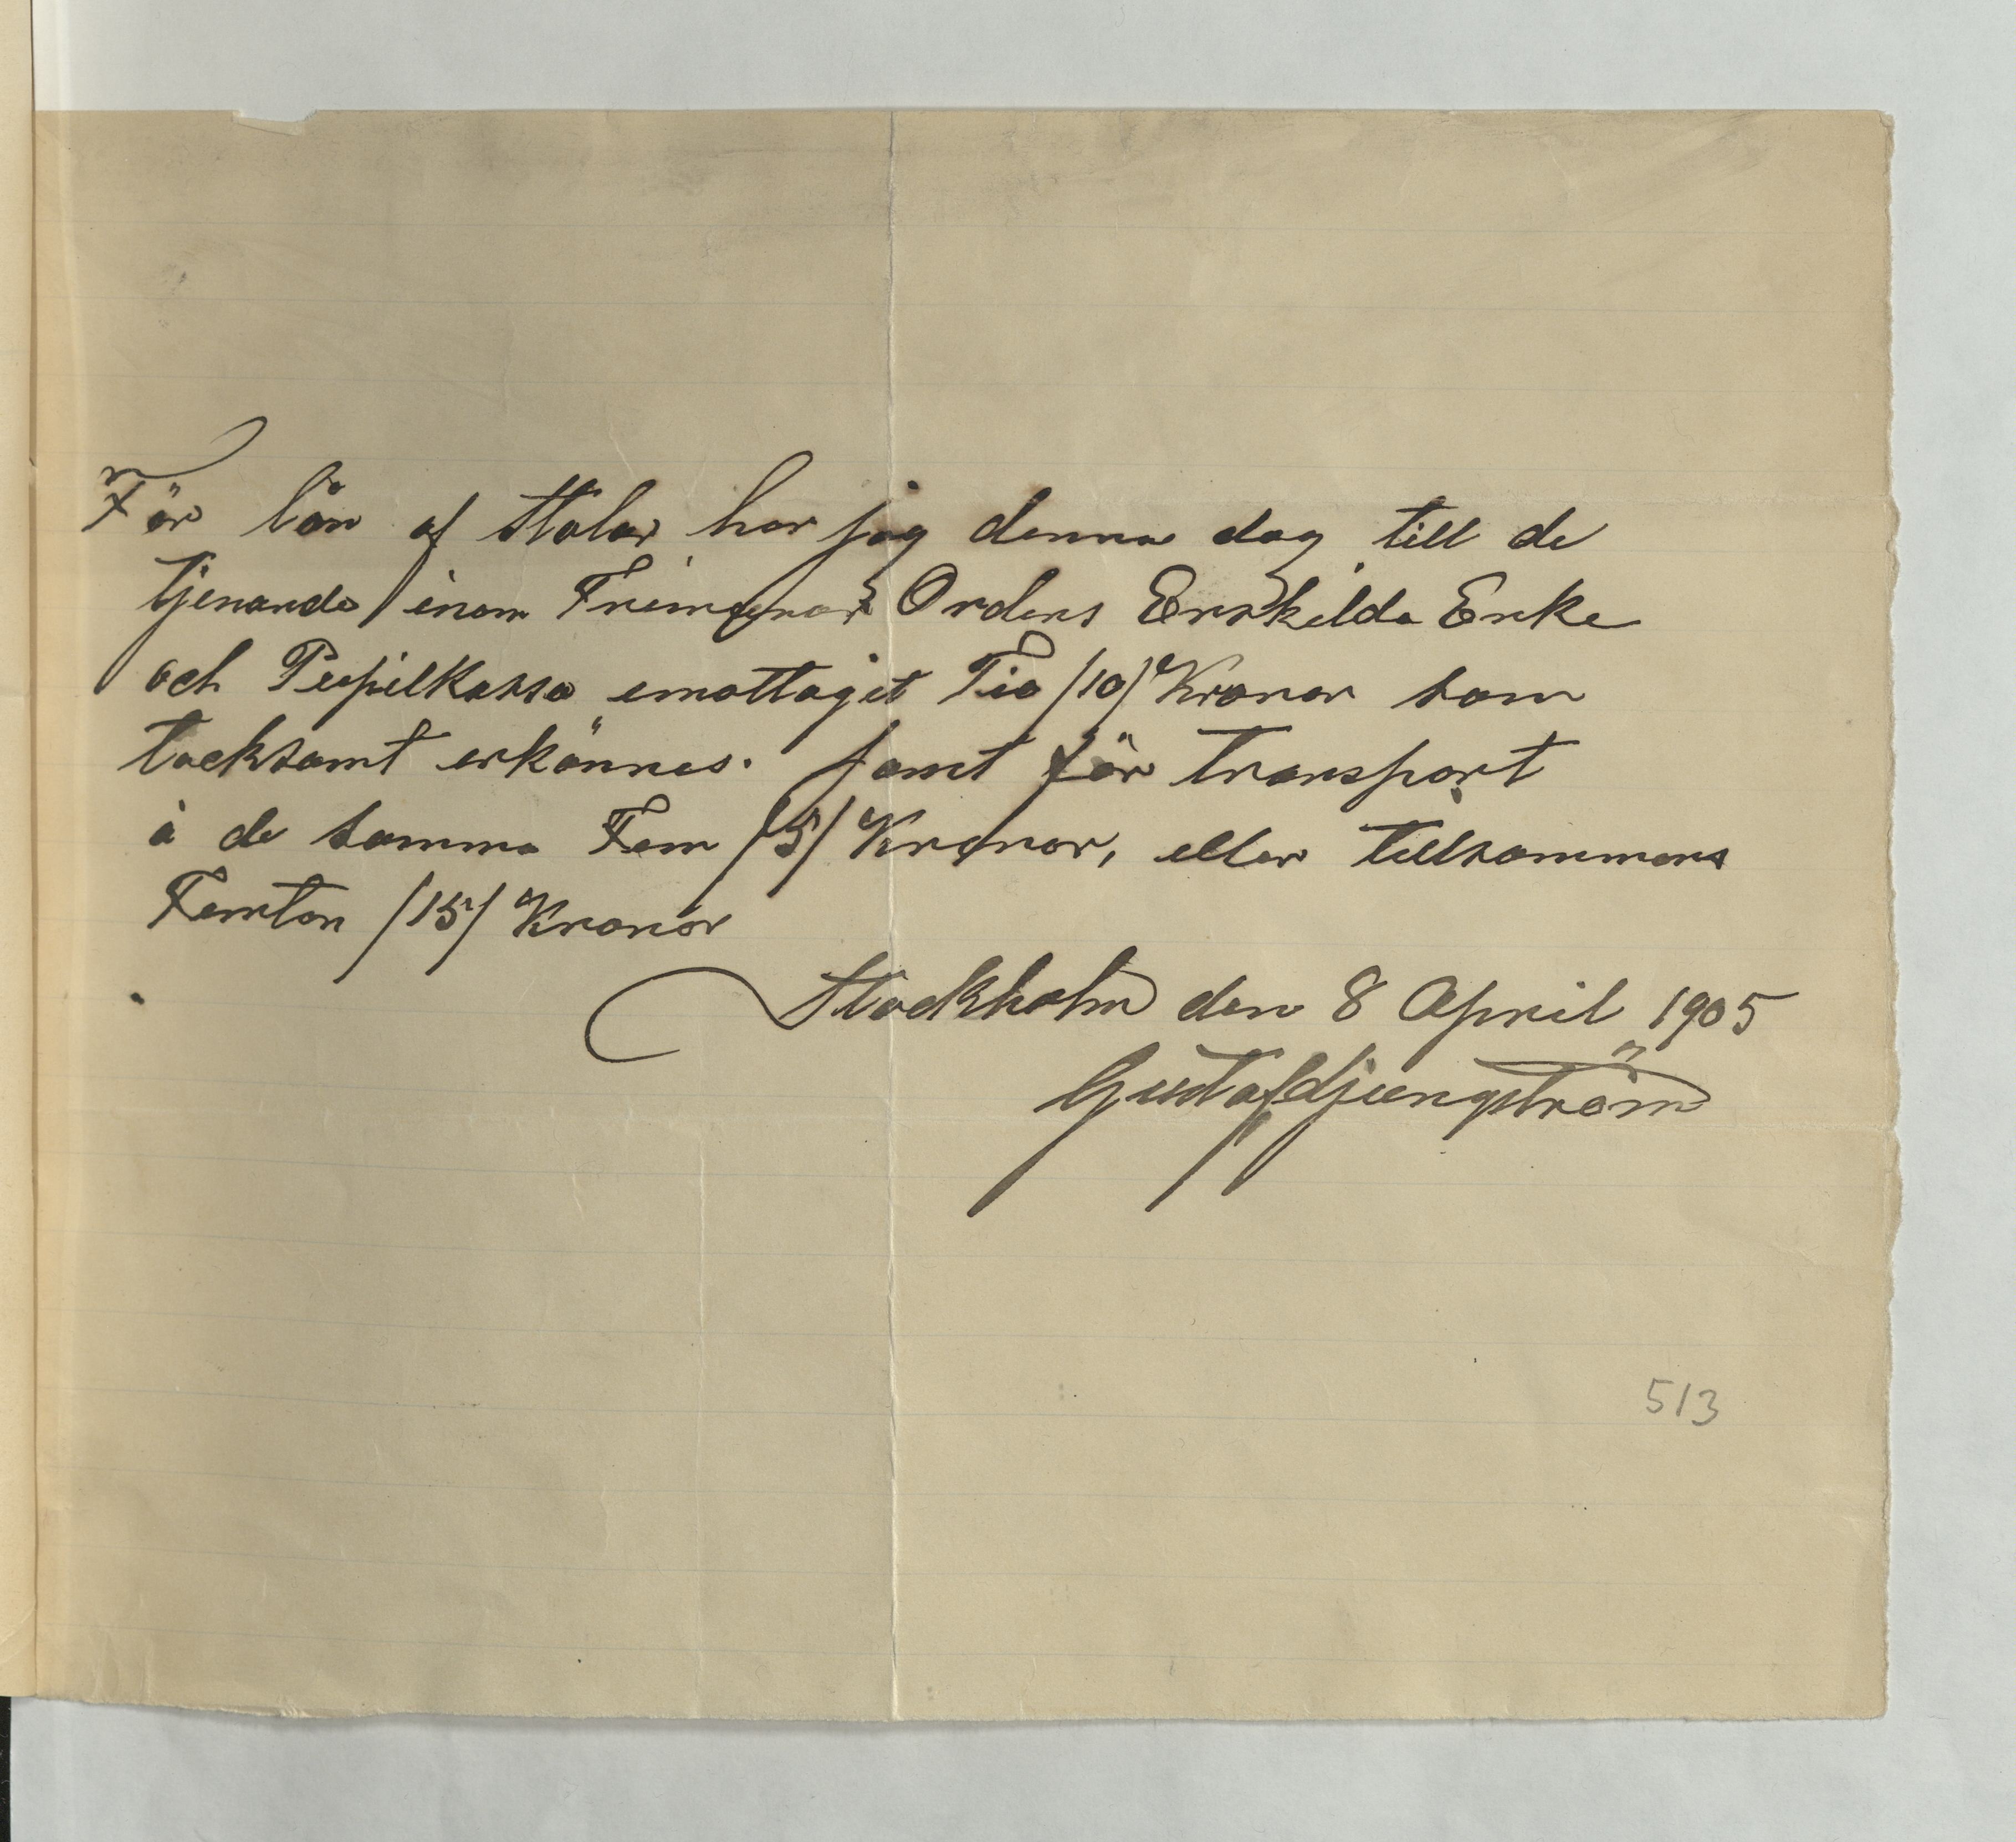 För lån af Stolar har jag denna dag till de
tjenande inom Frimurar Ordens Enskilda Enke
och Pupilkassa emottagit Tio /10/ Kronor som
tacksamt erkännes. samt för transport
å de samma Fem /5/ Kronor, eller tillsammans
Femton /15/ Kronor
Stockholm den 8 April 1905
Gustaf Ljungström
513